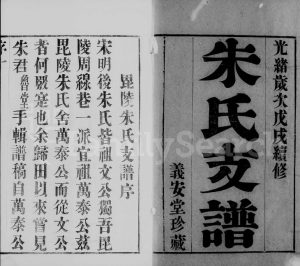 光緒歲次戊戌續修
朱氏支譜
義安堂珍藏
毘陵朱氏支譜序
宋明後朱氏皆祖文公獨吾毘
陵周線巷一派宣祖萬泰公茲
毘陵朱氏舍萬泰公而從文公
者何嚴寔也余歸田以來嘗見
朱君
手輯譜稿自萬泰公
序一